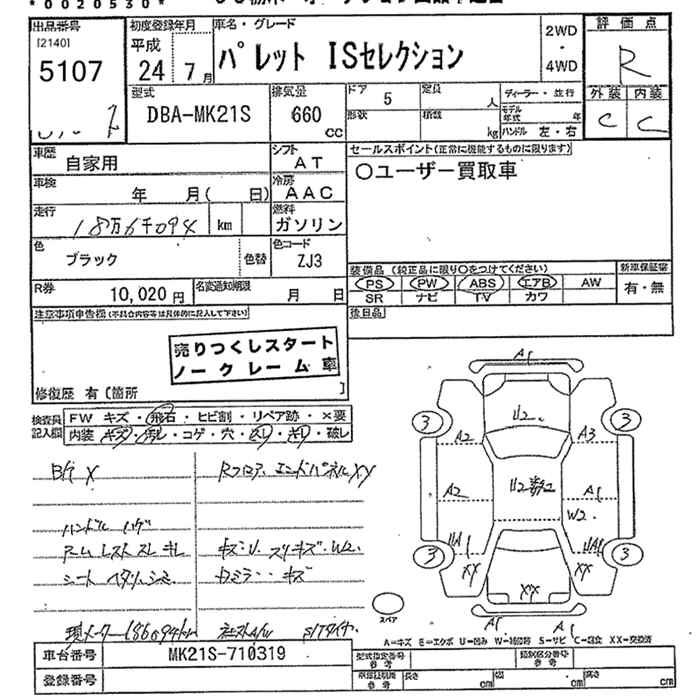 *0020530*
出品番号 初度登録年月 車名・グレード 評価点
[2140] 平成
5107 24年7月 パレット ISセレクション 2WD・4WD R
型式 排気量 ドア 5 定員 人 ディーラー・並行 外装 内装
DBA-MK21S 660cc 形状 積載 kg モデル年式 年 ハンドル 左・右 C C
車歴 自家用 シフト AT セールスポイント(正常に機能するものに限ります)
車検 年 月( 日) 冷房 AAC ○ユーザー買取車
走行 18万6千094 km 燃料 ガソリン
色 ブラック 色替 色コード ZJ3
装備品(純正品に限り○をつけてください) 新車保証書
R券 10,020円 名変通知期限 月 日 PS PW ABS エアB AW 有・無
SR ナビ TV カワ
注意事項申告欄(不具合内容等は具体的に記入して下さい) 後日品
売りつくしスタート
ノークレーム車
修復歴 有[箇所 ]
検査員記入欄 FW キズ・飛石・ヒビ割・リペア跡・×要
内装 キズ・汚レ・コゲ・穴・スレ・キレ・破レ
A1
U2
3 3
A2 A3
A2 A1
W2
3 3
XX XX
XX
A1 A1
ハンドル ハゲ
シート ヘタリ、シミ
現メーター186094km
スペア
A=キズ E=エクボ U=凹み W=補修跡 S=サビ C=腐食 XX=交換済
車台番号 MK21S-710319 型式指定番号 参考 類別区分番号 参考
登録番号 車庫証明用 参考 長さ cm 幅 cm 高さ cm